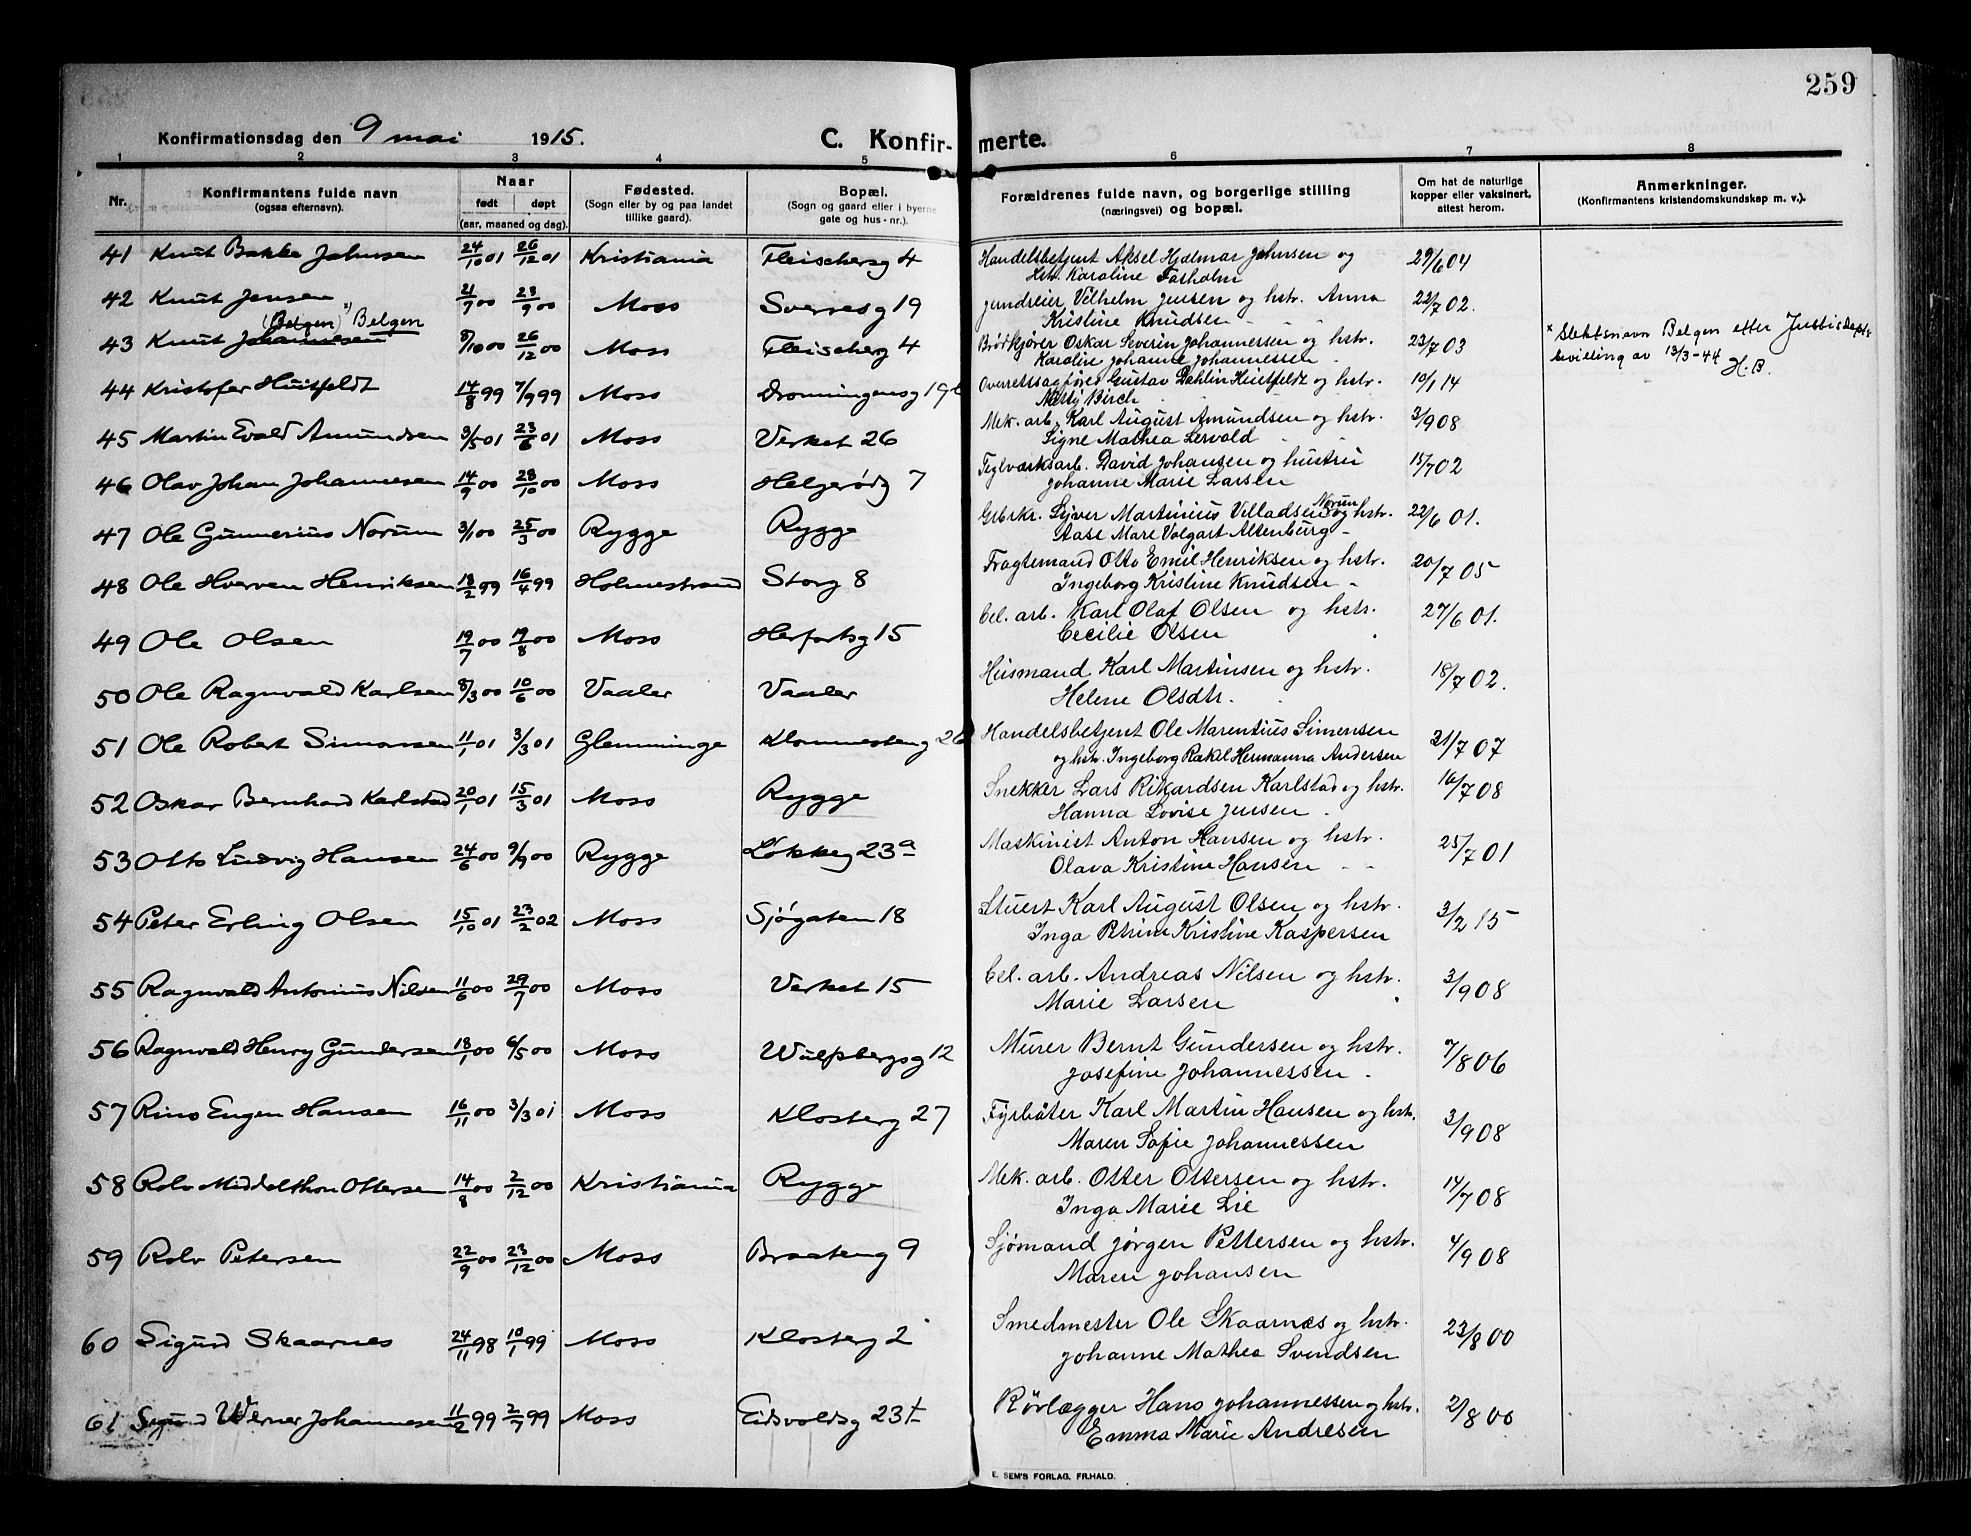 259
Konfirmationsdag den 9 mai 1915. C. Konfir- merte.
1 2 3 4 5 6 7 8
Nr. Konfirmantens fulde navn (ogsaa efternavn). Naar født døpt (aar, maaned og dag). Fødested. (Sogn eller by og paa landet tillike gaard). Bopæl. (Sogn og gaard eller i byerne gate og hus-nr.). Forældrenes fulde navn, og borgerlige stilling (næringsvei) og bopæl. Om hat de naturlige kopper eller vaksinert, attest herom. Anmerkninger. (Konfirmantens kristendomskundskap m. v.).
41 Knut Bakke Johnsen 24/10 01 26/12 01 Kristiania Fleischersg 4 Handelsbetjent Aksel Hjalmar Johnsen og 29/6 04
hstr. Karoline Fosholm
42 Knut Jensen 21/7 00 23/9 00 Moss Sverresg 19 Jundreier Vilhelm Jensen og hstr. Anna 22/7 02.
Kristine Knudsen
(Belgen) x) Belgen
43 Knut Johannesen 8/10 00 26/12 00 Moss Fleischerg 4 Brødkjører Oskar Severin Johannessen og hstr. 23/7 03 x Slektsnavn Belgen efter Justisdepts
Karoline Johanne Johannessen bevilling av 13/3-44 H.B.
44 Kristofer Huitfeldt 14/8 99 7/9 99 Moss Dronningensg 19b Overretssagfører Gustav Dahlin Huitfeldt og hstr. 10/1 14
Betty Birch
45 Martin Evald Amundsen 3/5 01 23/6 01 Moss Verket 26 Mek. arb. Karl August Amundsen og hstr. 3/9 08
Signe Mathea Lervold
46 Olav Johan Johannesen 14/9 00 28/10 00 Moss Helgerødg 7 Teglværksarb. David Johansen og hustru 15/7 02
Johanne Marie Larsen
47 Ole Gunnerius Norum 3/1 00 25/3 00 Rygge Rygge Grbrkr. Syver Martinius Villadsen Norum og hstr. 22/6 01.
Aase Mare Volgart Altenburg
48 Ole Hverven Henriksen 18/2 99 16/4 99 Holmestrand Storg 8 Fragtemand Otto Emil Henriksen og hstr. 20/7 05
Ingeborg Kristine Knudsen
49 Ole Olsen 19/7 00 19/8 00 Moss Herfølsg 15 Cel. arb. Karl Olaf Olsen og hstr. 27/6 01.
Cecilie Olsen
50 Ole Ragnvald Karlsen 8/3 00 10/6 00 Vaaler Vaaler Husmand Karl Martinsen og hstr. 18/7 02.
Helene Olsdtr.
51 Ole Robert Simonsen 11/1 01 3/3 01 Glemminge Klommesteng 26 Handelsbetjent Ole Marentius Simensen 31/7 07
og hstr. Ingeborg Rakel Hermanna Andersen
52 Oskar Bernhard Karlstad 20/1 01 15/3 01 Moss Rygge Snekker Lars Rikardsen Karlstad og hstr. 16/7 08
Hanna Lovise Jensen
53 Otto Ludvig Hansen 24/6 00 9/9 00 Rygge Løkkeg 23a Maskinist Anton Hansen og hstr. 25/7 01
Olava Kristine Hansen
54 Peter Erling Olsen 15/10 01 23/2 02 Moss Sjøgaten 18 Stuert Karl August Olsen og hstr. 3/2 15
Inga Petrine Kristine Kaspersen
55 Ragnvald Antonius Nilsen 11/6 00 29/7 00 Moss Verket 15 Cel. arb. Andreas Nilsen og hstr. 3/9 08
Marie Larsen
56 Ragnvald Henry Gundersen 18/1 00 6/5 00 Moss Wulfsbergsg 12 Murer Bernt Gundersen og hstr. 7/8 06
Josefine Johannessen
57 Rino Eugen Hansen 16/11 00 3/3 01 Moss Klosterg 27 Fyrbøter Karl Martin Hansen og hstr. 3/9 08
Maren Sofie Johannessen
58 Rolv Middelthon Ottersen 14/8 00 2/12 00 Kristiania Rygge Mek. arb. Otter Ottersen og hstr. 14/7 08
Inga Marie Lie
59 Rolv Petersen 22/9 00 23/12 00 Moss Braateng 9 Sjømand Jørgen Pettersen og hstr. 4/9 08
Maren Johansen
60 Sigurd Skaarnes 24/11 98 10/1 99 Moss Klosterg 2 Smedmester Ole Skaarnes og hstr. 23/8 00
Johanne Mathea Svendsen
61 Sigurd Werner Johannesen 11/2 99 2/7 99 Moss Eidsvoldsg 23 Rørlægger Hans Johannessen og hstr. 2/8 00
Emma Marie Andresen
E. SEM'S FORLAG, FR.HALD.